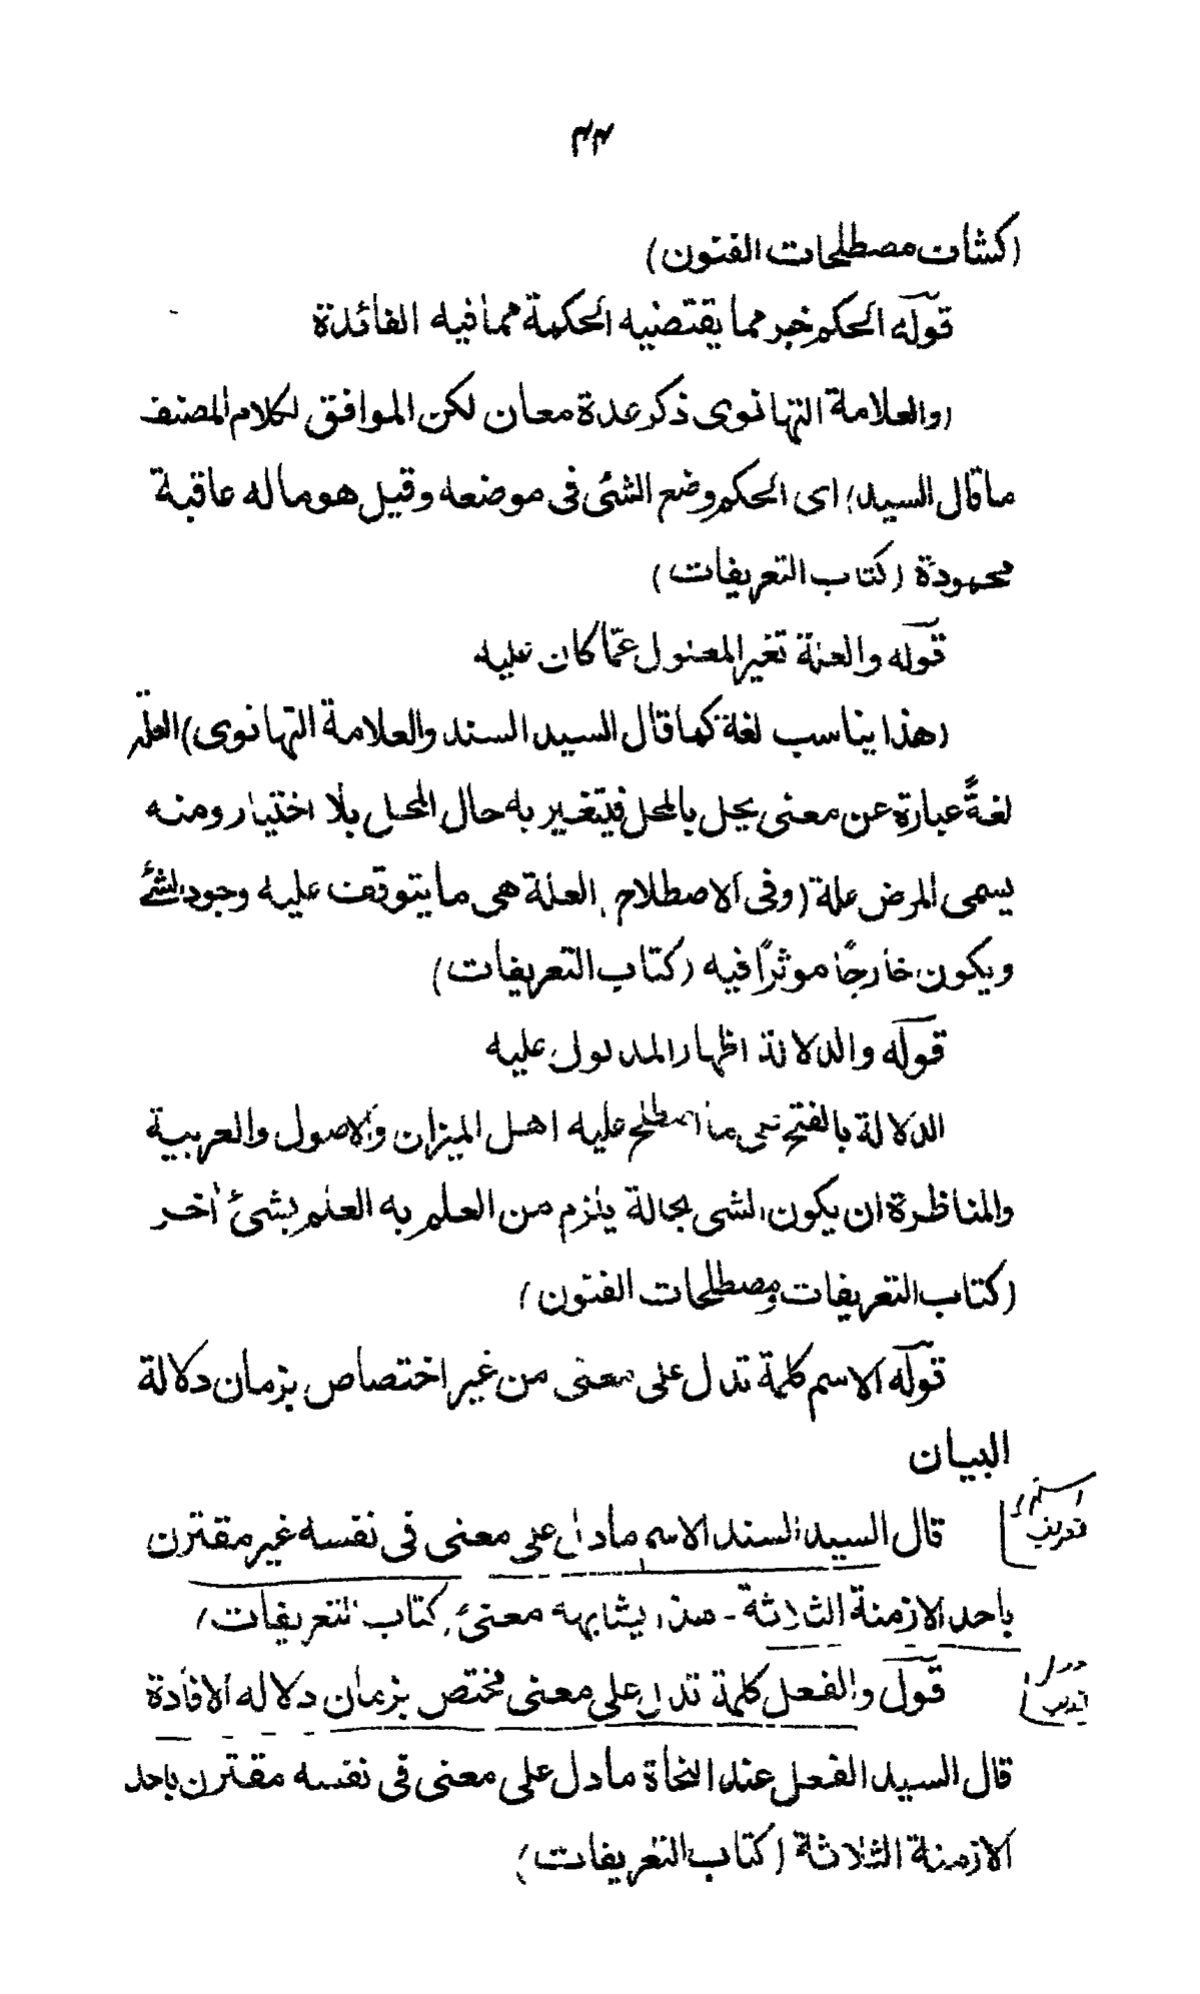 (كشاف مصطلحات الفنون)
قوله الحكم خبر مما يقتضيه الحكمة مما فيه الفائدة
(والعلامة التهانوى ذكر عدة معان لكن الموافق لكلام المصنف
ما قال السيد) اى الحكم وضع الشئ فى موضعه وقيل هو ما له عاقبة
محمودة (كتاب التعريفات)
قوله والعلة تغير المعلول عمّا كان عليه
(هذا يناسب لغة كما قال السيد السند والعلامة التهانوى) العلة
لغةً عبارة عن معنى يحل بالمحل فيتغير به حال المحل بلا اختيار ومنه
يسمى المرض علة (وفى الاصطلاح) العلة هى ما يتوقف عليه وجود الشئ
ويكون خارجًا موثرًا فيه (كتاب التعريفات)
قوله والدلالة اظهار المدلول عليه
الدلالة بالفتح هى ما اصطلح عليه اهل الميزان والاصول والعربية
والمناظرة ان يكون الشى بحالة يلزم من العلم به العلم بشئ أخر
(كتاب التعريفات ومصطلحات الفنون)
قوله الاسم كلمة تدل على معنى من غير اختصاص بزمان دلالة
البيان
قال السيد السند الاسم ما دل على معنى فى نفسه غير مقترن
باحد الازمنة الثلاثة - يشابهه معنىً (كتاب التعريفات)
قول والفعل كلمة تدل على معنى مختص بزمان دلاله الافادة
قال السيد الفعل عند النحاة ما دل على معنى فى نفسه مقترن باحد
الازمنة الثلاثة (كتاب التعريفات)